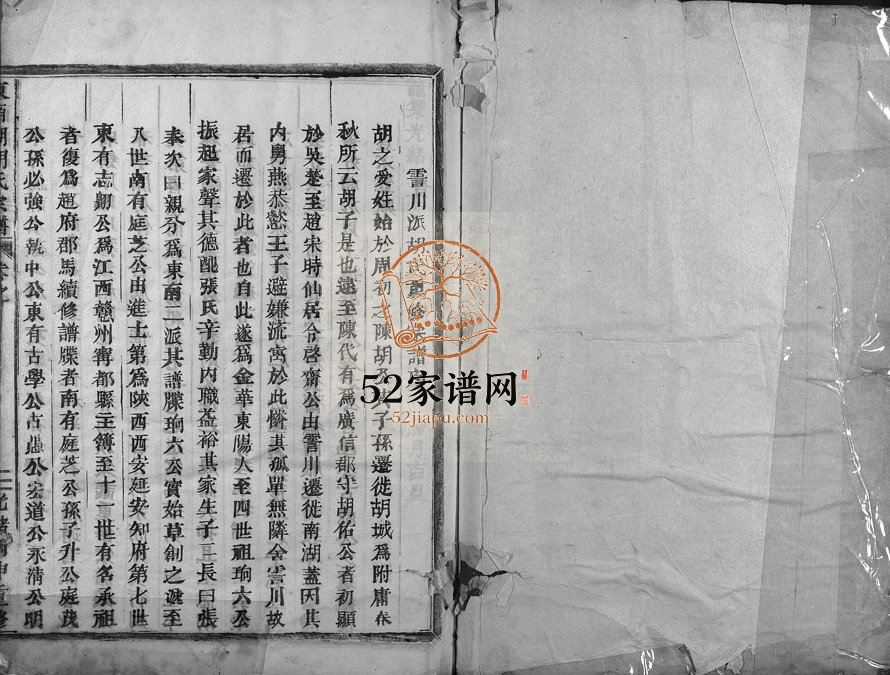 霅川派胡氏重修宗譜
胡之受姓始於周初之陳胡公子孫遷徙胡城為附庸春
秋所云胡子是也逮至陳代有為廣信郡守胡佑公者初顯
於吳楚至趙宋時仙居令啓齋公由霅川遷徙南湖蓋因其
内舅燕恭懿王子避嫌流寓於此憐其孤單無隣舍霅川故
居而遷於此者也自此遂為金華東陽人至四世祖珦六公
振起家聲其德配張氏辛勤內職益裕其家生子二長曰張
奉次曰親分為東南二派其譜牒珦六公實始草創之遞至
八世南有庭芝公由進士第為陝西西安延安知府第七世
東有志剏公為江西贛州甯都縣主簿至十一世有名承祖
者復為趙府郡馬續修譜牒者南有庭芝公孫子升公庭茂
公孫必強公執中公東有古學公古愚公宏道公永淸公明
東南湖胡氏宗譜
卷之
二
光緒
申重修
52家谱网
52jiapu.com